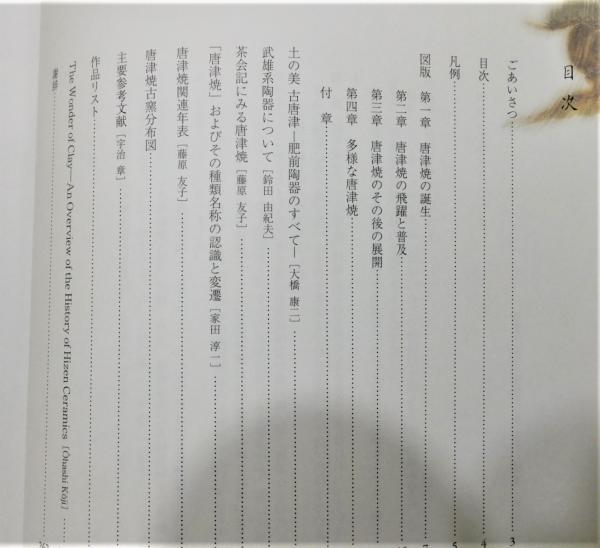 目次
ごあいさつ 3
目次 4
凡例 5
図版 第一章 唐津焼の誕生 7
第二章 唐津焼の飛躍と普及
第三章 唐津焼のその後の展開
第四章 多様な唐津焼
付章
土の美 古唐津―肥前陶器のすべて―[大橋 康二]
武雄系陶器について[鈴田 由紀夫]
茶会記にみる唐津焼[藤原 友子]
「唐津焼」およびその種類名称の認識と変遷[家田 淳一]
唐津焼関連年表[藤原 友子]
唐津焼古窯分布図
主要参考文献[宇治 章]
作品リスト
The Wonder of Clay—An Overview of the History of Hizen Ceramics [Ōhashi Kōji]
謝辞